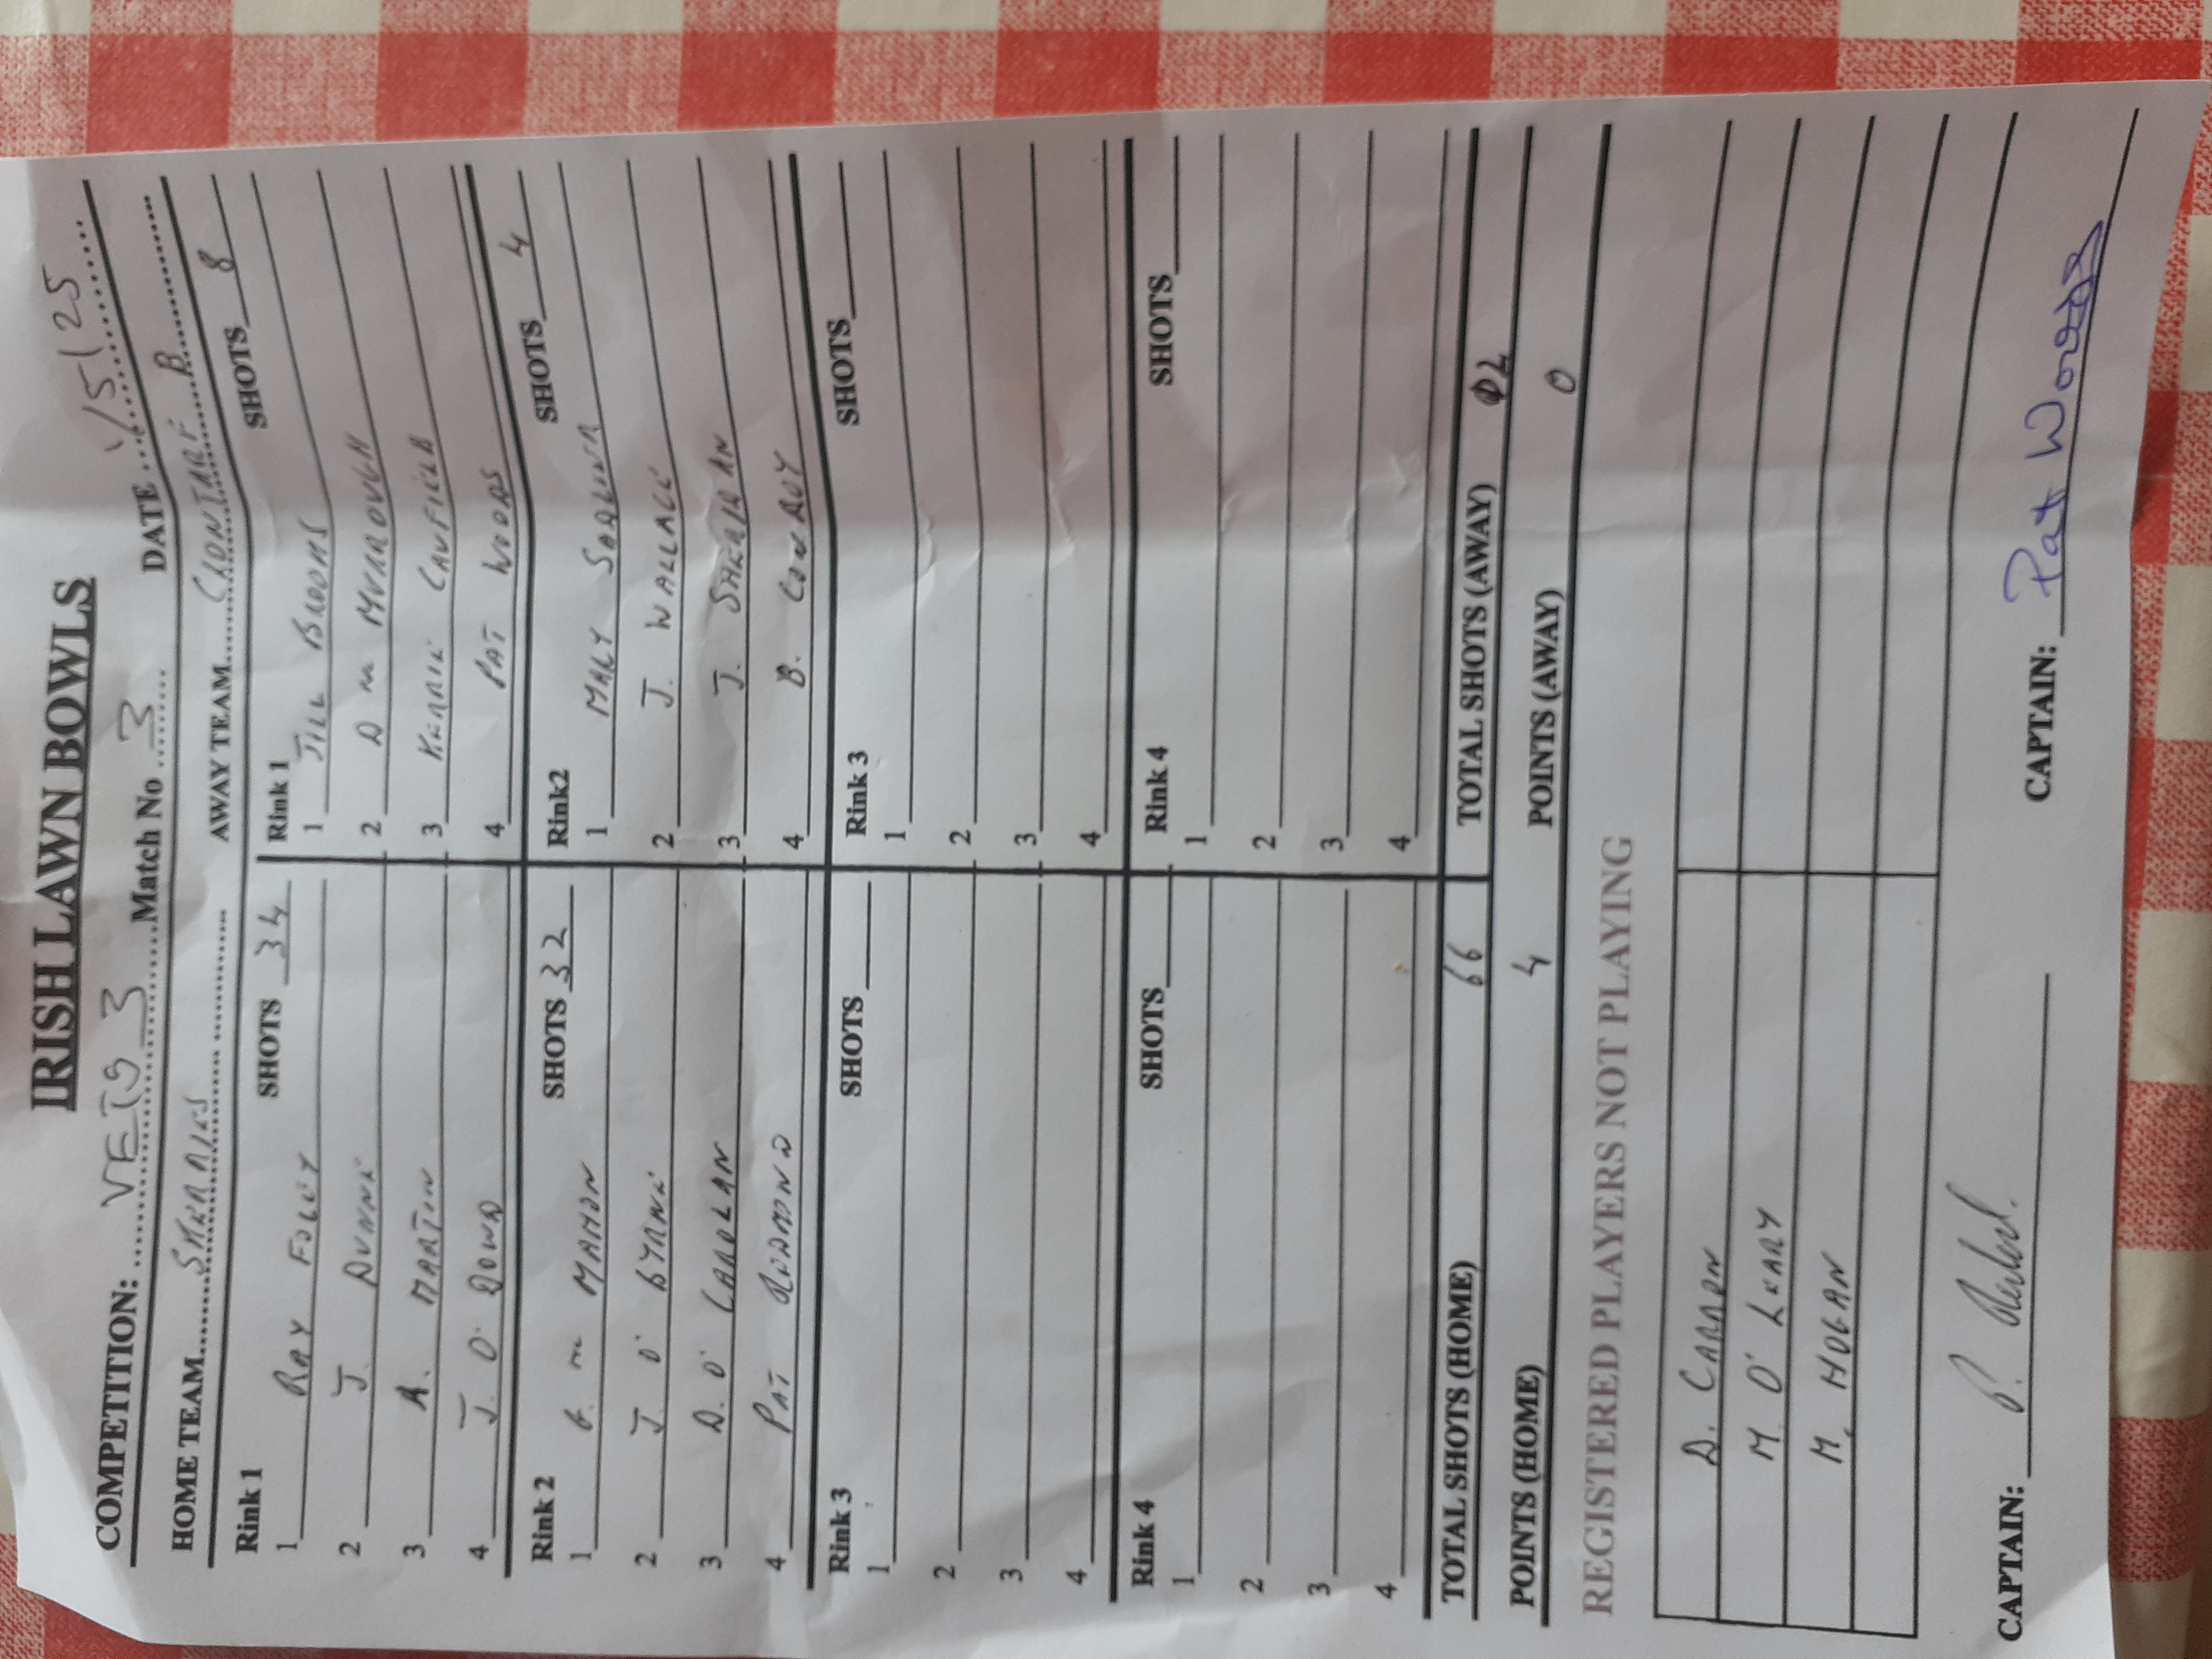 IRISH LAWN BOWLS
COMPETITION: VETS 3 Match No 3 DATE 1/5/25
HOME TEAM SKERRIES AWAY TEAM CLONTARF B
Rink 1 SHOTS 34 Rink 1 SHOTS 8
1 RAY FOLEY 1 JILL
2 J. DUNNE 2 D Mc MURROUGH
3 A. MARTIN 3 KERRIE CAUFIELD
4 J. O' DOWD 4 PAT WOODS
Rink 2 SHOTS 32 Rink2 SHOTS 4
1 G. Mc MAHON 1 MARY
2 J. O' BYRNE 2 J. WALLACE
3 D. O' CAROLAN 3 J. SHERIDAN
4 PAT REDMOND 4 B. CONROY
Rink 3 SHOTS Rink 3 SHOTS
1 1
2 2
3 3
4 4
Rink 4 SHOTS Rink 4 SHOTS
1 1
2 2
3 3
4 4
TOTAL SHOTS (HOME) 66 TOTAL SHOTS (AWAY) 12
POINTS (HOME) 4 POINTS (AWAY) 0
REGISTERED PLAYERS NOT PLAYING
D. CARRON
M. O' LEARY
M. HOGAN
CAPTAIN: P. Redmond. CAPTAIN: Pat Woods